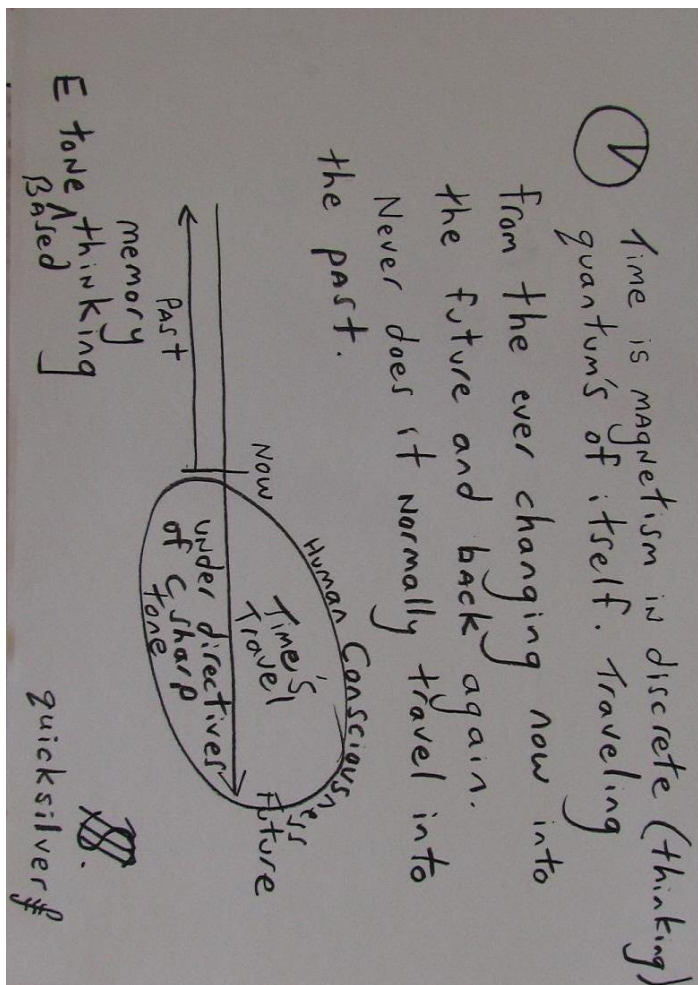 Time is MAGNetism in discrete (thinking)
quantum's of itself. Traveling
from the ever changing now into
the future and back again.
Never does it Normally travel into
the PAST.
NOW
Human Consciousness
Time's
Travel
Future
under directives
of C sharp
tone
PAST
memory
E toNe thinking
BASed
quicksilver